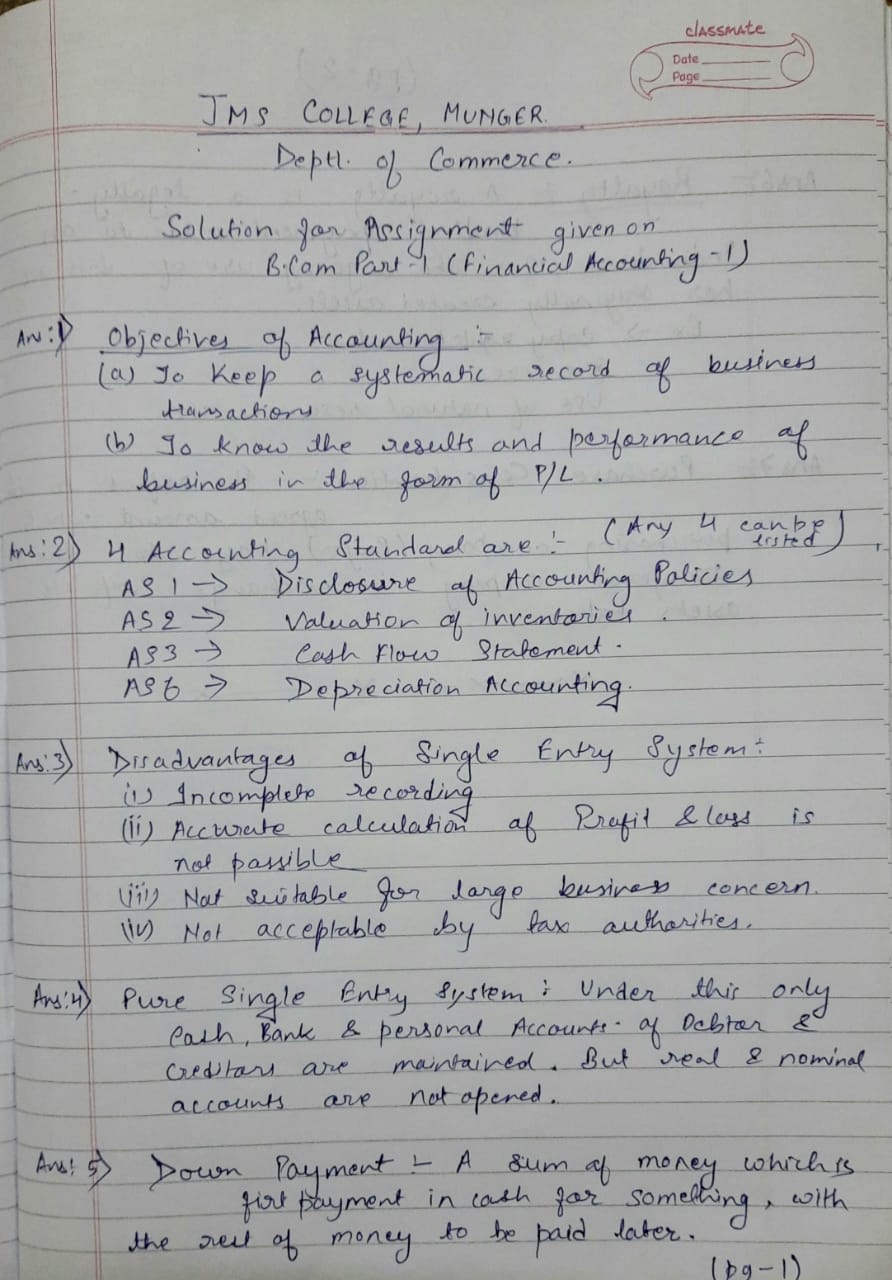 classmate
Date
Page
JMS COLLEGE, MUNGER.
Deptt. of Commerce.
Solution for Assignment given on
B.Com Part-1 (Financial Accounting-1)
Ans:1) Objectives of Accounting :-
(a) To Keep a systematic record of business
transactions
(b) To know the results and performance of
business in the form of P/L.
Ans:2) 4 Accounting Standard are :- (Any 4 can be listed)
AS 1 → Disclosure of Accounting Policies
AS 2 → Valuation of inventories.
AS3 → Cash Flow Statement.
AS6 → Depreciation Accounting.
Ans:3) Disadvantages of Single Entry System:
(i) Incomplete recording
(ii) Accurate calculation of Profit & loss is
not possible
(iii) Not suitable for large business concern.
(iv) Not acceptable by tax authorities.
Ans:4) Pure Single Entry System : Under this only
Cash, Bank & personal Accounts. of Debtor &
Creditors are maintained. But real & nominal
accounts are not opened.
Ans: 5) Down Payment :- A sum of money which is
first payment in cash for something, with
the rest of money to be paid later.
(pg-1)